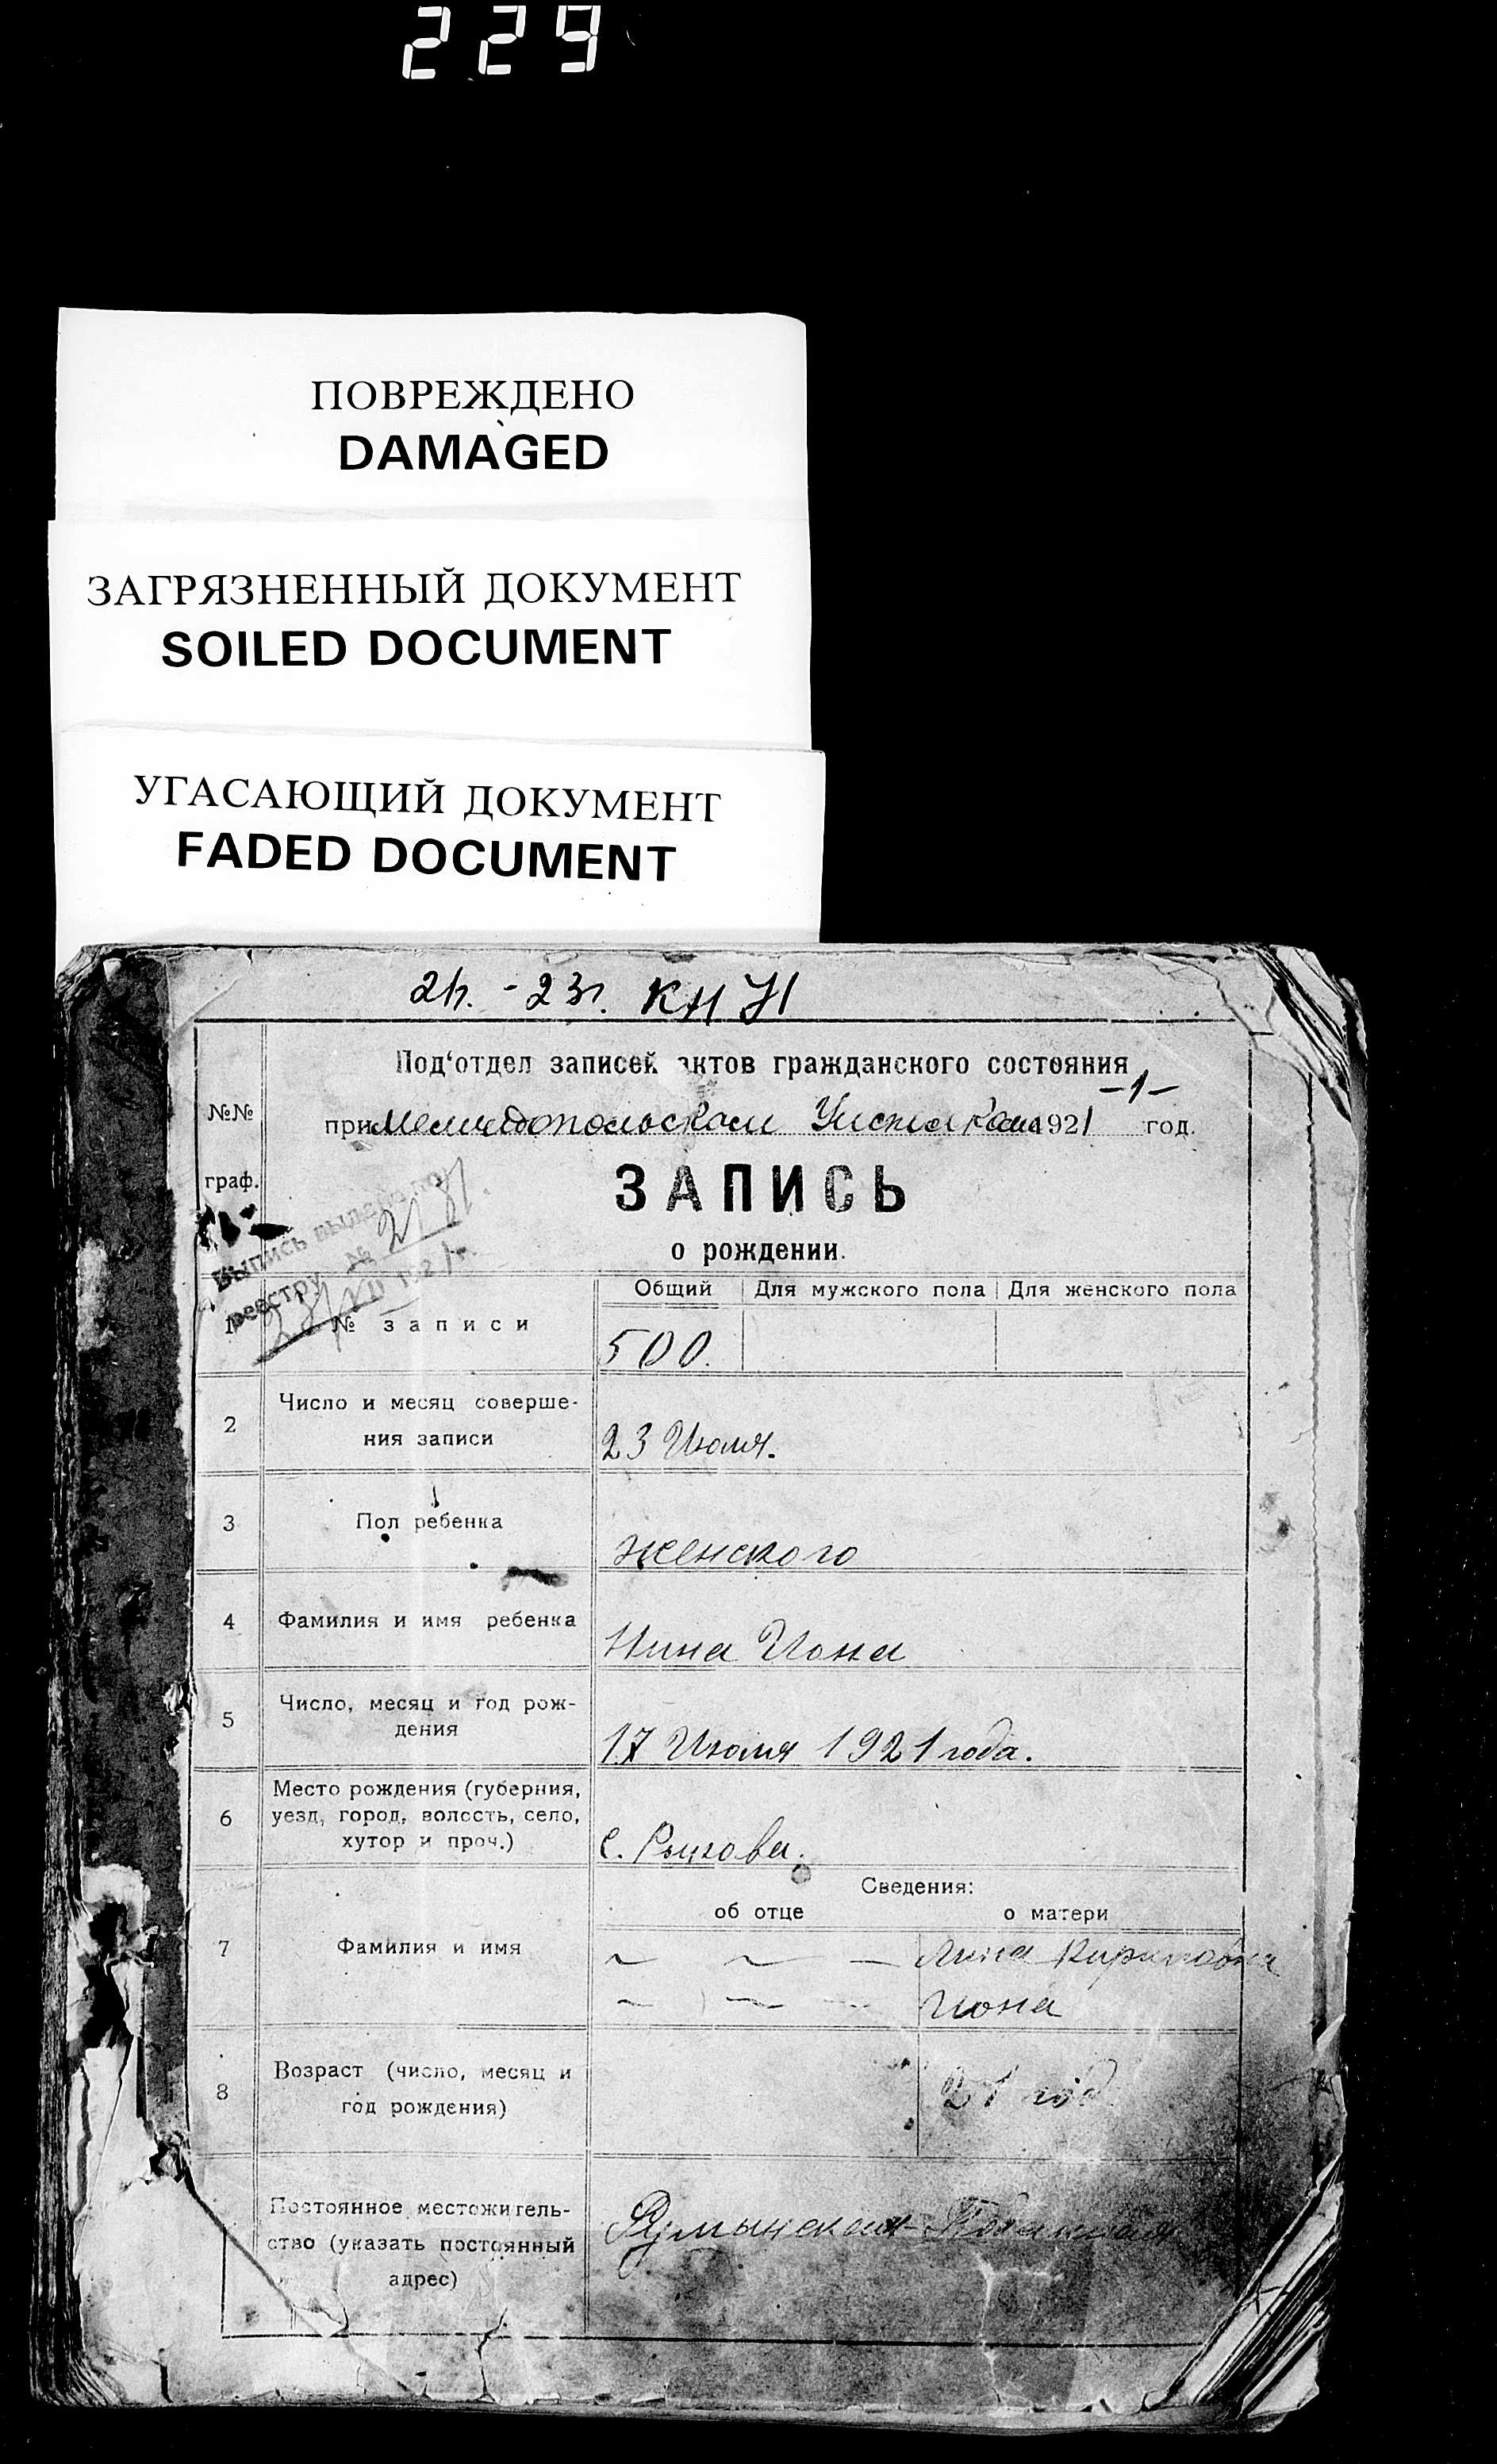 229
ПОВРЕЖДЕНО
DAMAGED
ЗАГРЯЗНЕННЫЙ ДОКУМЕНТ
SOILED DOCUMENT
УГАСАЮЩИЙ ДОКУМЕНТ
FADED DOCUMENT
Под'отдел записей актов гражданского состояния
-1-
№№ граф.
при Мелитопольском 1921 год.
ЗАПИСЬ
о рождении.
Выпись выдана по
реестру №
Общий Для мужского пола Для женского пола
1 № записи 500.
2 Число и месяц соверше-
ния записи 23 Июля.
3 Пол ребенка женского
4 Фамилия и имя ребенка Нина Иона
5 Число, месяц и год рож-
дения 17 Июля 1921 года.
6 Место рождения (губерния,
уезд, город, волость, село,
хутор и проч.) с.
Сведения:
об отце о матери
7 Фамилия и имя
Иона
8 Возраст (число, месяц и
год рождения) 21 год
Постоянное местожитель-
ство (указать постоянный
адрес) Румынская